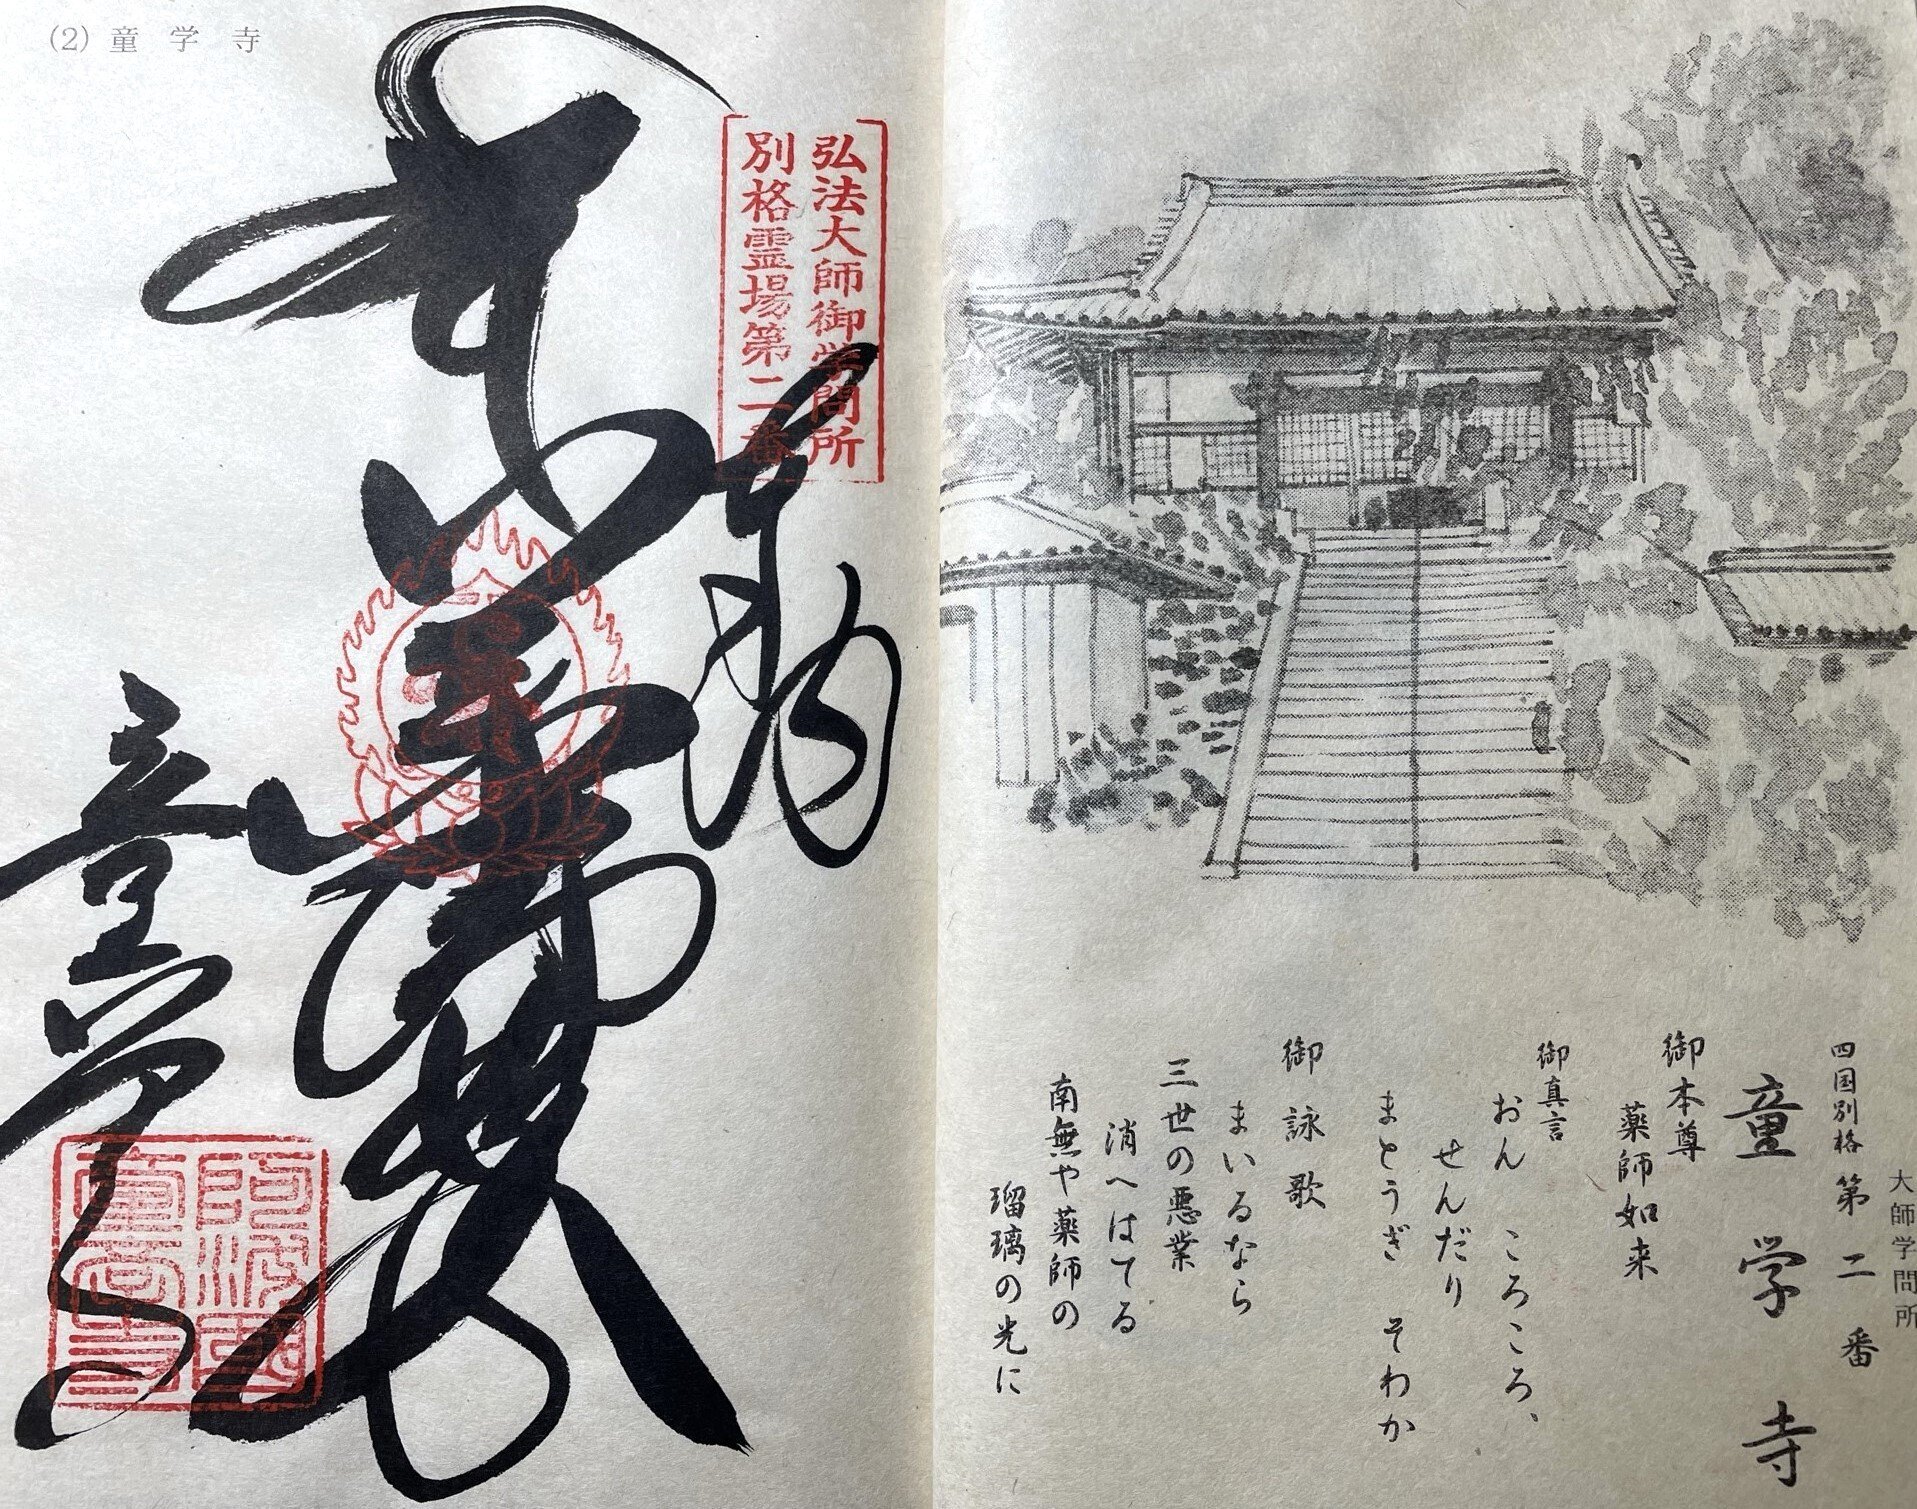 大師学問所
四国別格 第二番
童学寺
御本尊
薬師如来
御真言
おん ころころ、
せんだり
まとうぎ そわか
御詠歌
まいるなら
三世の悪業
消へはてる
南無や薬師の
瑠璃の光に
(2) 童学寺
弘法大師御学問所
別格霊場第二番
奉納
童学寺
阿波國
童學寺